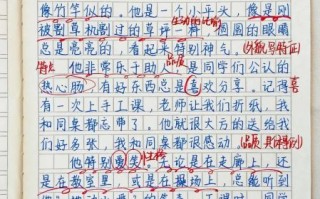 像竹竿似的。他是一个小平头，像是刚
被割草机割过的草坪一样
生动的比喻
圆圆的眼睛
总是亮亮的，看起来特别神气。
(外貌写特征)
品质
他非常乐于助人，是同学们公认的
热心肠。有好东西总是喜欢分享。记得
有一次上手工课，老师让我们折纸，我
和同桌都忘带了。他就很大方的送给我
们好多张，我和同桌都很感动。
(品质 具体事例)
他特别爱笑。无论是在走廊上，还
是在教室里，或是在操场上，总能听到